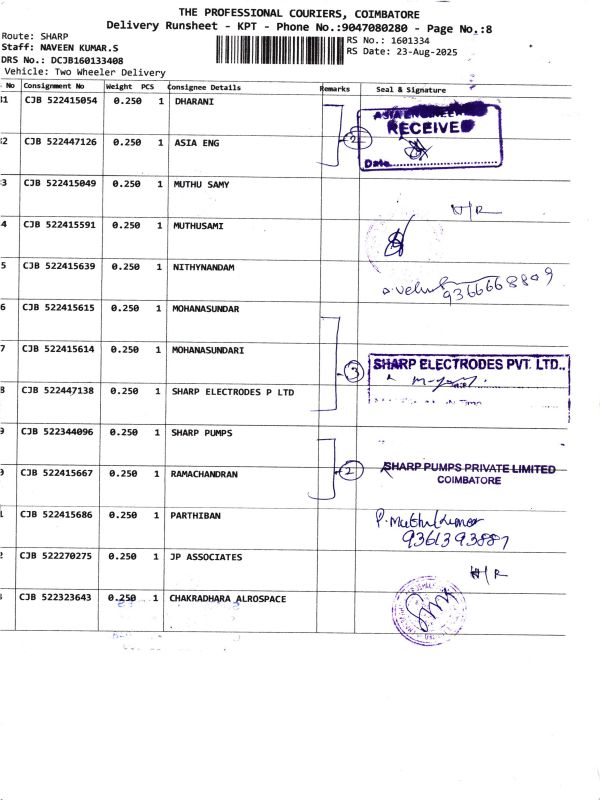 THE PROFESSIONAL COURIERS, COIMBATORE
Delivery Runsheet - KPT - Phone No.:9047080280 - Page No.:8
Route: SHARP
Staff: NAVEEN KUMAR.S
DRS No.: DCJB160133408
Vehicle: Two Wheeler Delivery
RS No.: 1601334
RS Date: 23-Aug-2025
No Consignment No Weight PCS Consignee Details Remarks Seal & Signature
31 CJB 522415054 0.250 1 DHARANI
32 CJB 522447126 0.250 1 ASIA ENG
2
ASIA ENGINEERING
RECEIVED
Date
3 CJB 522415049 0.250 1 MUTHU SAMY
N/R
4 CJB 522415591 0.250 1 MUTHUSAMI
5 CJB 522415639 0.250 1 NITHYNANDAM
9366668809
6 CJB 522415615 0.250 1 MOHANASUNDAR
7 CJB 522415614 0.250 1 MOHANASUNDARI
8 CJB 522447138 0.250 1 SHARP ELECTRODES P LTD
3
SHARP ELECTRODES PVT. LTD.,
9 CJB 522344096 0.250 1 SHARP PUMPS
CJB 522415667 0.250 1 RAMACHANDRAN
2
SHARP PUMPS PRIVATE LIMITED
COIMBATORE
1 CJB 522415686 0.250 1 PARTHIBAN
P. Muthukumar
9361393887
2 CJB 522270275 0.250 1 JP ASSOCIATES
N/R
3 CJB 522323643 0.250 1 CHAKRADHARA ALROSPACE